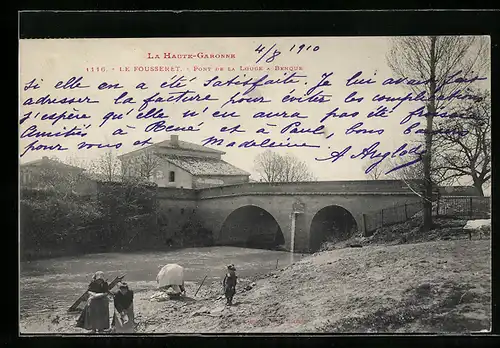 LA HAUTE-GARONNE
4/8 1910
1116. - LE FOUSSERET. - PONT DE LA LOUGE A BENQUE
Si elle en a été satisfaite, Je lui avais fait
adresser la facture pour éviter les complications
J'espère qu'elle n'en aura pas été
Amitiés à René et à Paul, bons baisers
pour vous et Madeleine